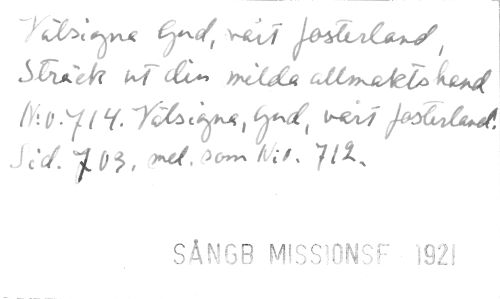 Välsigna Gud, vårt fosterland,
Sträck ut din milda allmakts hand
N:o. 714. Välsigna, Gud, vårt fosterland.
Sid. 703, mel. som N:o. 712.
SÅNGB MISSIONSF 1921